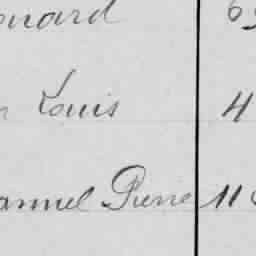 onard 6
n Louis 4
annuel Pierre 11